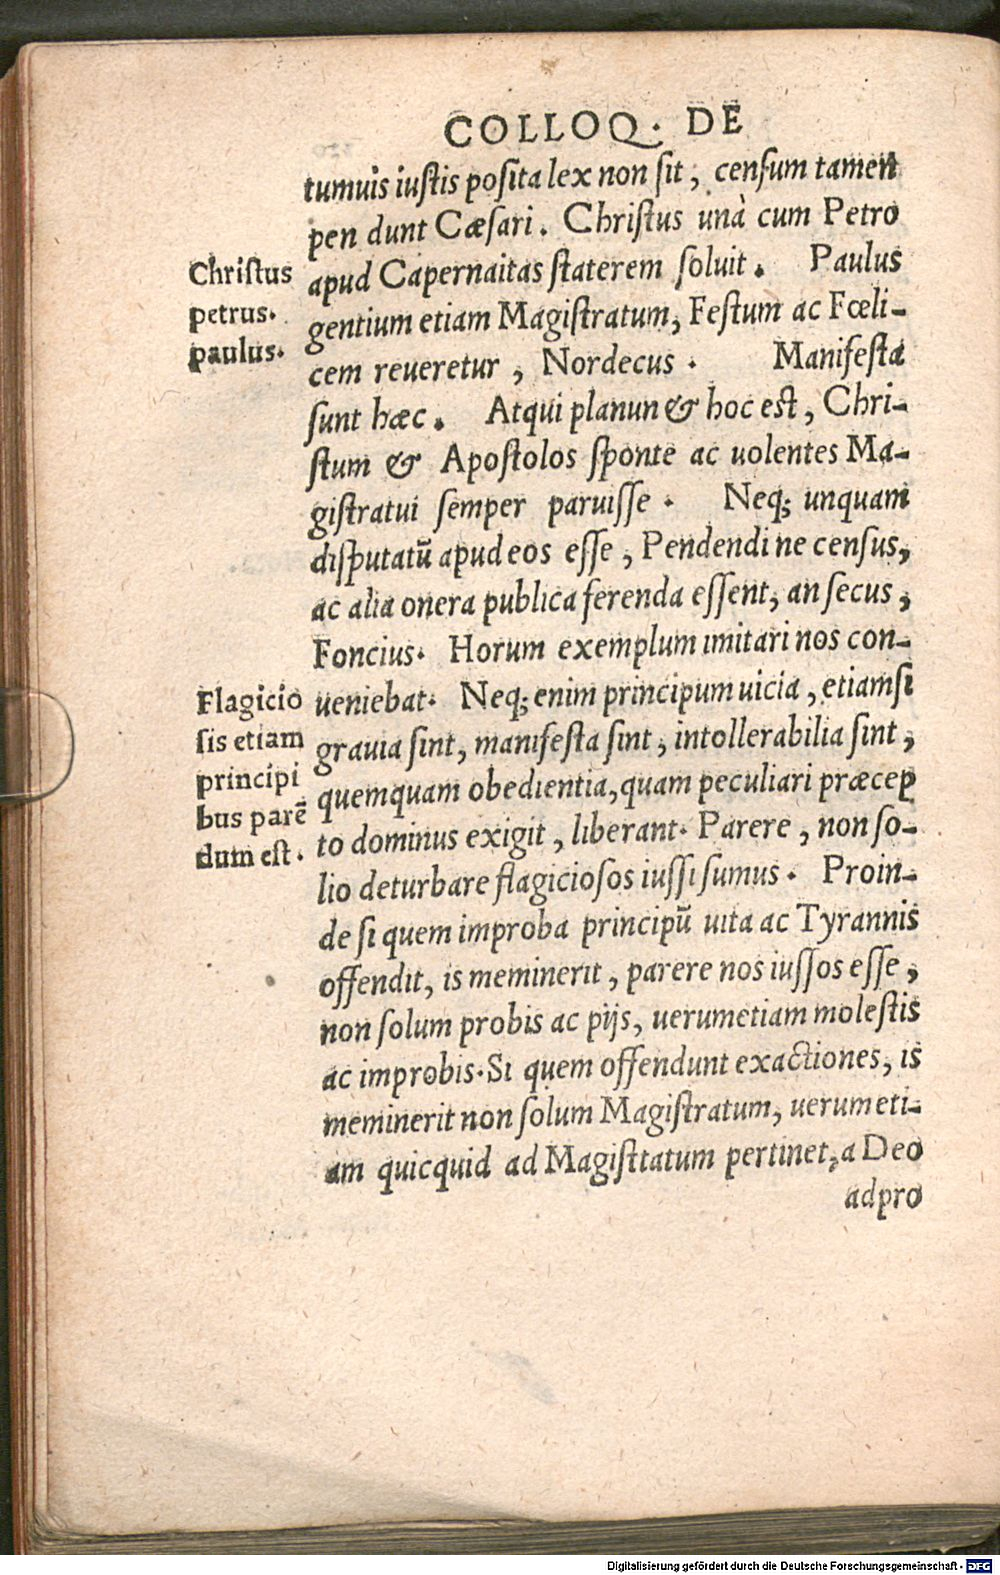 COLLOQ. DE
tumuis iustis posita lex non sit, censum tamen
pen dunt Cæsari. Christus unà cum Petro
Christus
petrus.
paulus.
apud Capernaitas staterem soluit. Paulus
gentium etiam Magistratum, Festum ac Fœli-
cem reueretur, Nordecus. Manifesta
sunt hæc. Atqui planun & hoc est, Chri-
stum & Apostolos sponte ac uolentes Ma-
gistratui semper paruisse. Neq; unquam
disputatū apud eos esse, Pendendi ne census,
ac alia onera publica ferenda essent, an secus,
Foncius. Horum exemplum imitari nos con-
Flagicio
sis etiam
principi
bus parē
dum est.
ueniebat. Neq; enim principum uicia, etiamsi
grauia sint, manifesta sint, intollerabilia sint,
quemquam obedientia, quam peculiari præcep
to dominus exigit, liberant. Parere, non so-
lio deturbare flagiciosos iussi sumus. Proin-
de si quem improba principū uita ac Tyrannis
offendit, is meminerit, parere nos iussos esse,
non solum probis ac pijs, uerumetiam molestis
ac improbis. Si quem offendunt exactiones, is
meminerit non solum Magistratum, uerum eti-
am quicquid ad Magisttatum pertinet, a Deo
adpro
Digitalisierung gefördert durch die Deutsche Forschungsgemeinschaft - DFG